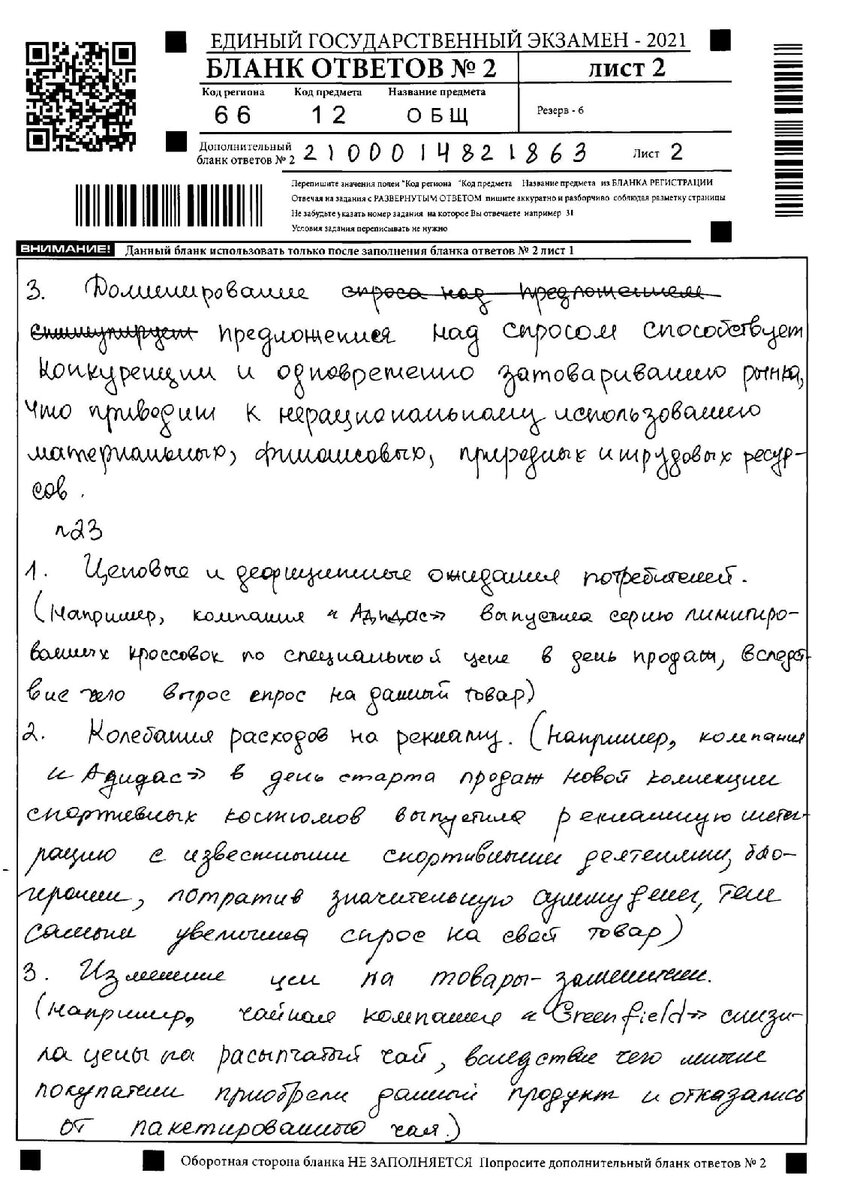 ЕДИНЫЙ ГОСУДАРСТВЕННЫЙ ЭКЗАМЕН - 2021
БЛАНК ОТВЕТОВ № 2
лист 2
Код региона Код предмета Название предмета
66 12 ОБЩ
Резерв - 6
Дополнительный бланк ответов № 2 2100014821863 Лист 2
Перепишите значения полей "Код региона "Код предмета Название предмета из БЛАНКА РЕГИСТРАЦИИ
Отвечая на задания с РАЗВЕРНУТЫМ ОТВЕТОМ пишите аккуратно и разборчиво соблюдая разметку страницы
Не забудьте указать номер задания на которое Вы отвечаете например 31
Условия задания переписывать не нужно
ВНИМАНИЕ! Данный бланк использовать только после заполнения бланка ответов № 2 лист 1
3. Доминирование спроса над предложением
стимулирует предложения над спросом способствует
конкуренции и одновременно затовариванию рынка,
что приводит к нерациональному использованию
материальных, финансовых, природных и трудовых ресур-
сов.
№23
1. Ценовые и дефицитные ожидания потребителей.
(Например, компания «Адидас» выпустила серию лимитиро-
ванных кроссовок по специальной цене в день продаж, вследст-
вие чего вырос спрос на данный товар)
2. Колебания расходов на рекламу. (Например, компания
«Адидас» в день старта продаж новой коллекции
спортивных костюмов выпустила рекламную интег-
рацию с известными спортивными деятелями, бло-
герами, потратив значительную сумму денег, тем
самым увеличила спрос на свой товар)
3. Изменение цен на товары-заменители.
(Например, чайная компания «Greenfield» снизи-
ла цены на рассыпчатый чай, вследствие чего многие
покупатели приобрели данный продукт и отказались
от пакетированного чая.)
Оборотная сторона бланка НЕ ЗАПОЛНЯЕТСЯ Попросите дополнительный бланк ответов № 2